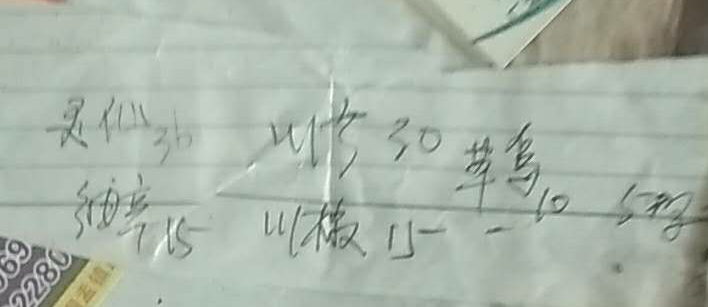 灵仙 30 川芎 30 草乌 10
细辛 15 川椒 15
069
2280